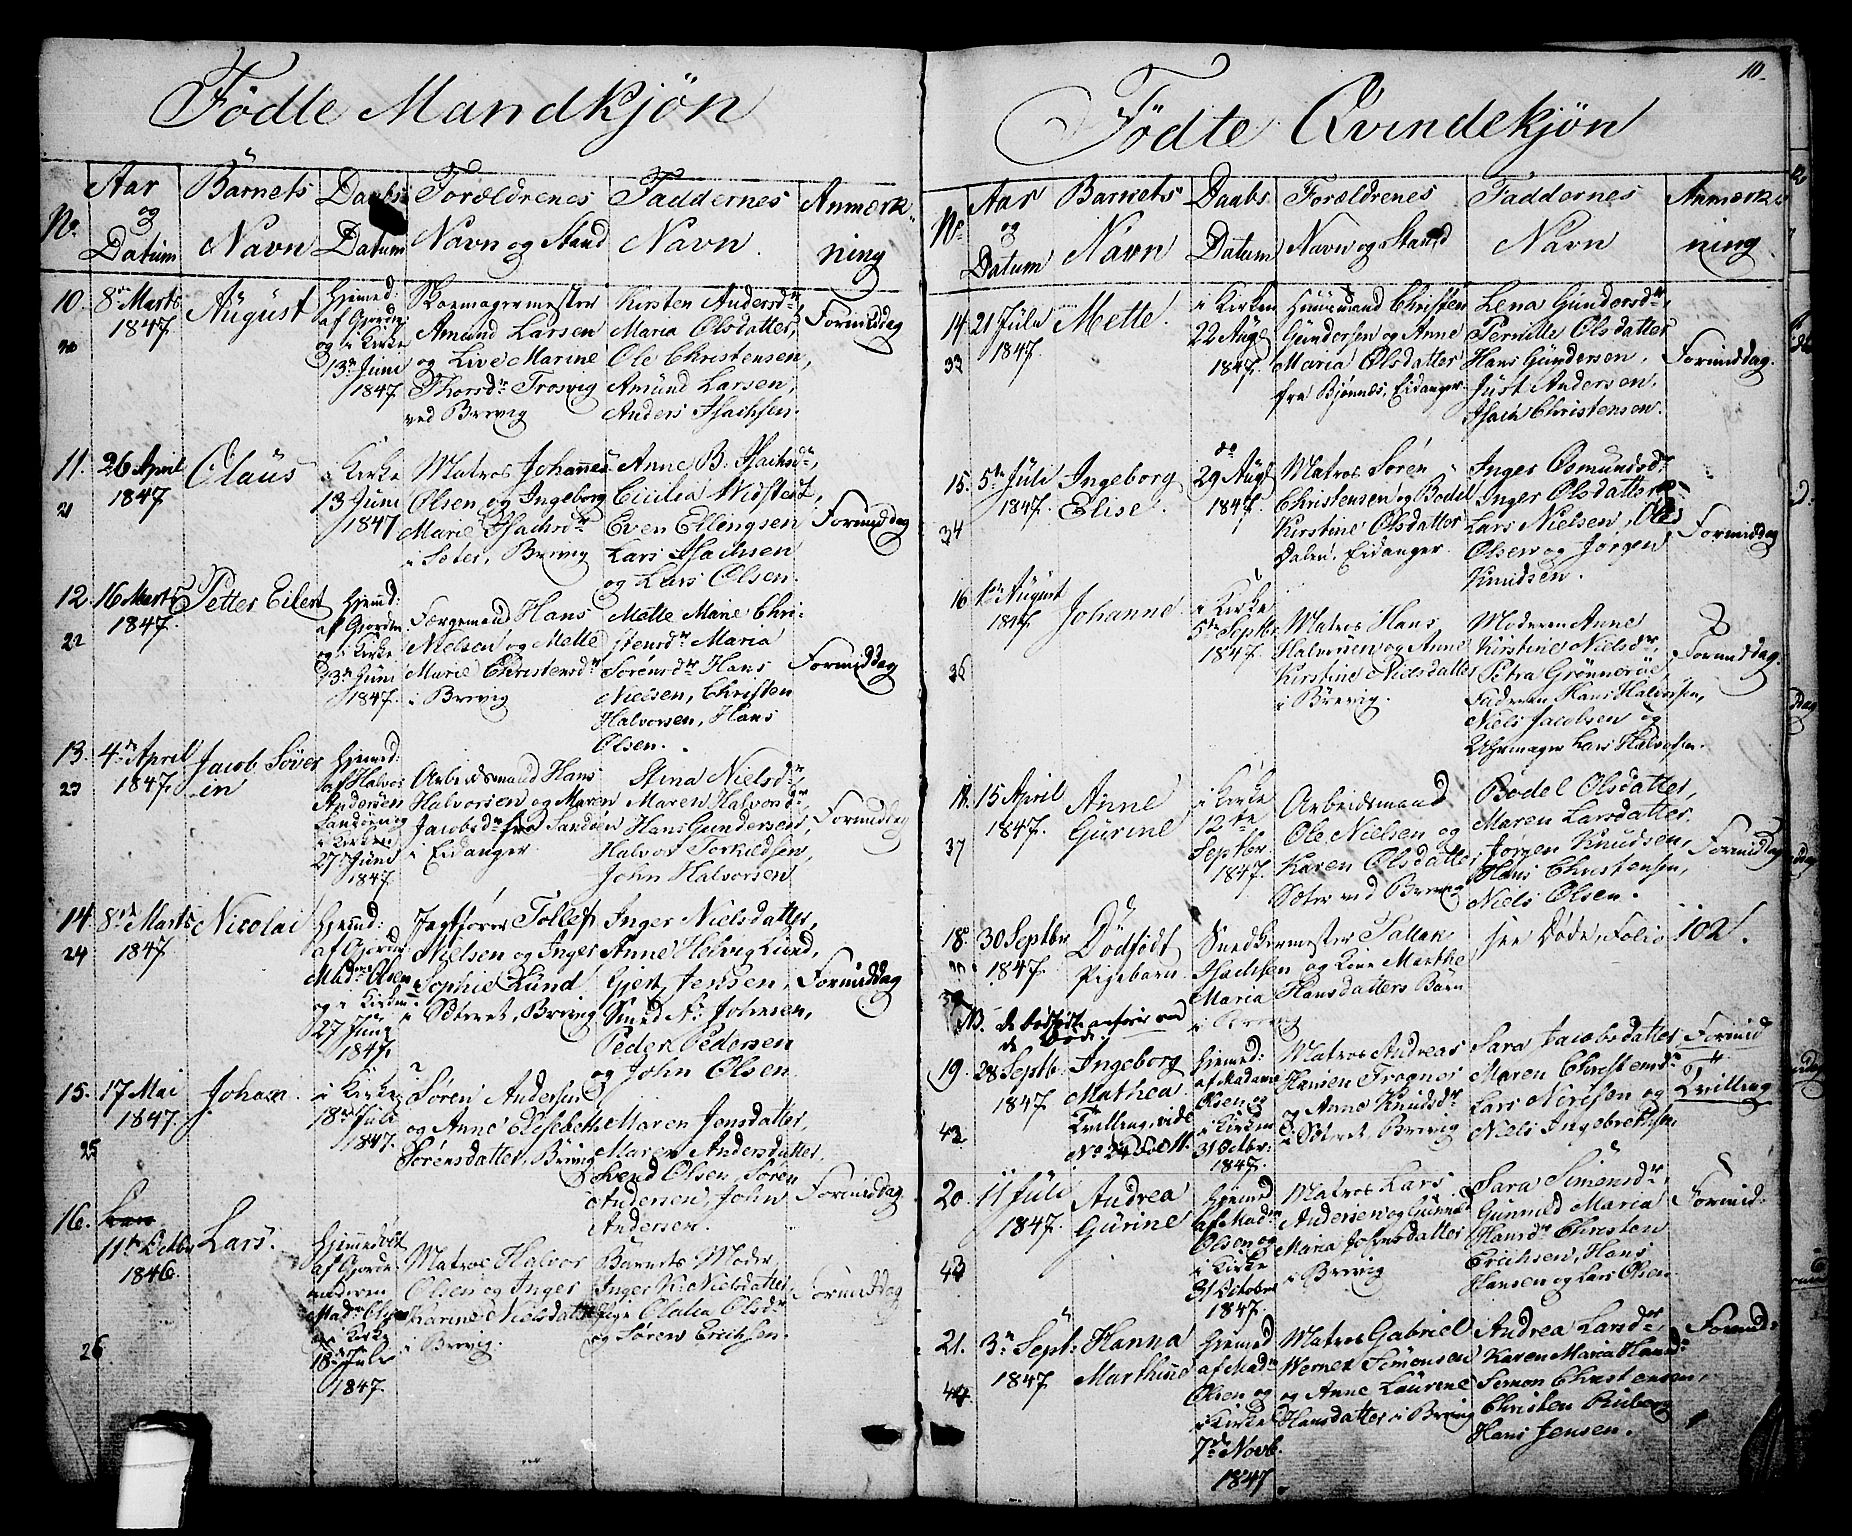 Födte Mandkjön
No.
Aar
og
Datum
Barnets
Navn
Daabs
Datum
Forældrenes
Navn og Stand
Faddernes
Navn.
Anmærk-
ning
10.
20
8de Marts
1847.
August
Hjemed:
af Gjorde
og i Kirke
13de Juni
1847.
Skoemagermester
Amund Larsen
og Live Marine
Thorsdr Trosvig
ved Brevig
Kirsten Andersdr
Maria Olsdatter,
Ole Christensen,
Amund Larsen,
Anders Isachsen.
Formiddag
11.
21
26 April
1847.
Claus
i Kirke
13 Juni
1847
Matros Johannes
Olsen og Ingeborg
Marie Isachsdr
i Brevig
Anne B. Isachsdr,
Cicilia
Even Ellingsen
Lars Isachsen
og Lars Olsen.
Formiddag
12.
22
16 Marts
1847.
Petter Eilert
Hjemd:
af Gjorden
og i Kirke
13de Juni
1847.
Færgemand Hans
Nielsen og Mette
Marie Christensdr
i Brevig
Mette Marie Chri-
stensdr Maria
Sørensdr Hans
Nielsen, Christen
Halvorsen, Hans
Olsen.
Formiddag
13.
23
4de April
1847.
Jacob Söver
in
Hjemed:
af Halvor
Andersen
i Kirken
27de Juni
1847.
Arbeidsmand Hans
Halvorsen og Maren
Jacobsdr fra Sandøen
i Eidanger.
Stina Nielsdr,
Maren Halvorsdr
Hans Gundersen,
Halvor Torkildsen,
John Halvorsen
Formiddag
14.
24
8de Marts
1847.
Nicolai
Hjemd:
af Gjorde
Madme Olsen
og i Kirken
27 Juni
1847.
Jagtfører Tollef
Nielsen og Inger
Sophie Lund
i Brevig
Inger Nielsdatter,
Anne Helvig Lund,
Gjert Jensen,
Smed A: Johnsen,
Peder Pedersen
og John Olsen.
Formiddag
15.
25
17 Mai
1847.
Johan.
i Kirke
18de Juli
1847.
Sören Andersen
og Anne Elisebeth
Sørensdatter, Brevig
Maren Jensdatter,
Maren Andersdatter,
Svend Olsen, Søren
Andersen, John
Andersen.
Formiddag
16.
26
11te Octbr
1846.
Lars.
Hjemmedöbt
af Gjorde
moderen
Madme Olsen
og i Kirke
18de Juli
1847.
Matros Halvor
Olsen og Inger
Karine Nielsdatter
i Brevig.
Barnets Moder
Inger K. Nielsdatter
Pige Olalia Olsdr
og Søren Erichsen.
Formiddag
10.
Födte Qvindekjön
No.
Aar
og
Datum
Barnets
Navn
Daabs
Datum
Forældrenes
Navn og Stand
Faddernes
Navn
Anmærk-
ning
14.
33
21 Juli
1847.
Mette.
i Kirken
22 Augl
1847.
Huusmand Christen
Gundersen og Anne
Maria Olsdatter
fra Bjønnes, Eidanger.
Lena Gundersdr
Pernille Olsdatter
Hans Gundersen,
Just Andersen,
Isach Christensen.
Formiddag.
15.
34
5te Juli
1847.
Ingeborg
Elise.
do
29 Augl
1847.
Matros Sören
Christensen og Bodel
Kirstine Olsdatter
Dalen, Eidanger.
Inger Osmundsdr
Inger Olsdatter,
Lars Nielsen, Ole
Olsen og Jørgen
Knudsen.
Formiddag
16
36
August
1847.
Johanne.
i Kirke
5te Septbr
1847.
Matros Hans
Halvorsen og Anne
Kirstine Nielsdatter
i Brevig.
Moderen Anne
Kirstine Nielsdr,
Petra Grönneröe,
Faderen Hans Halvorsen,
Niels Jacobsen og
Uhrmager Lars Halvorsen.
Formiddag.
37
15 April
1847.
Anne
Gurine
i Kirke
12te
Septbr.
1847.
Arbeidsmand
Ole Nielsen og
Karen Olsdatter
ved Brevig
Bodel Olsdatter,
Maren Larsdatter,
Jörgen Knudsen,
Hans Christensen,
Niels Olsen.
Formiddag
18
30 Septbr
1847.
Dödfödt
Pigebarn.
Snedkermester Tallak
Isachsen og Kone Marthe
Maria Hansdatters Barn
i Brevig
see Døde Folio 102.
NB. de dødfødte anføres ved
de Døde.
19.
42
28 Septb.
1847.
Ingeborg
Mathea
Tvilling, vide
No 24
Hjemed:
af Madame
Olsen og
i Kirken
31 Octbr:
1847.
Matros Andreas
Hansen Trogner
og Anne Knudsdr
i Brevig
Sara Jacobsdatter
Maren Christensdr
Lars Nerisen og
Niels Ingebretsen,
Formid
Tvilling
20.
43
11 Juli
1847.
Andrea
Gurine
Hjemed
af Madm
Olsen og
i Kirke
31 October
1847.
Matros Lars
Andersen og Gunnild
Maria Johnsdatter
i Brevig
Sara Simensdr,
Gunnild Maria
Hansdr Christen
Erichsen, Hans
Hansen og Lars Olsen
Formid:
21.
44
3de Sept:
1847
Hanna
Marthine
Hjemed
af Madm
Olsen og
i Kirke
7de Novb.
1847.
Matros Gabriel
Werner Simonsen
og Anne Laurene
Hansdatter i Brevig
Andrea Larsdr
Karen Maria Hansdr
Simon Christensen,
Christen Ruberg
Hans Jensen.
Formid: